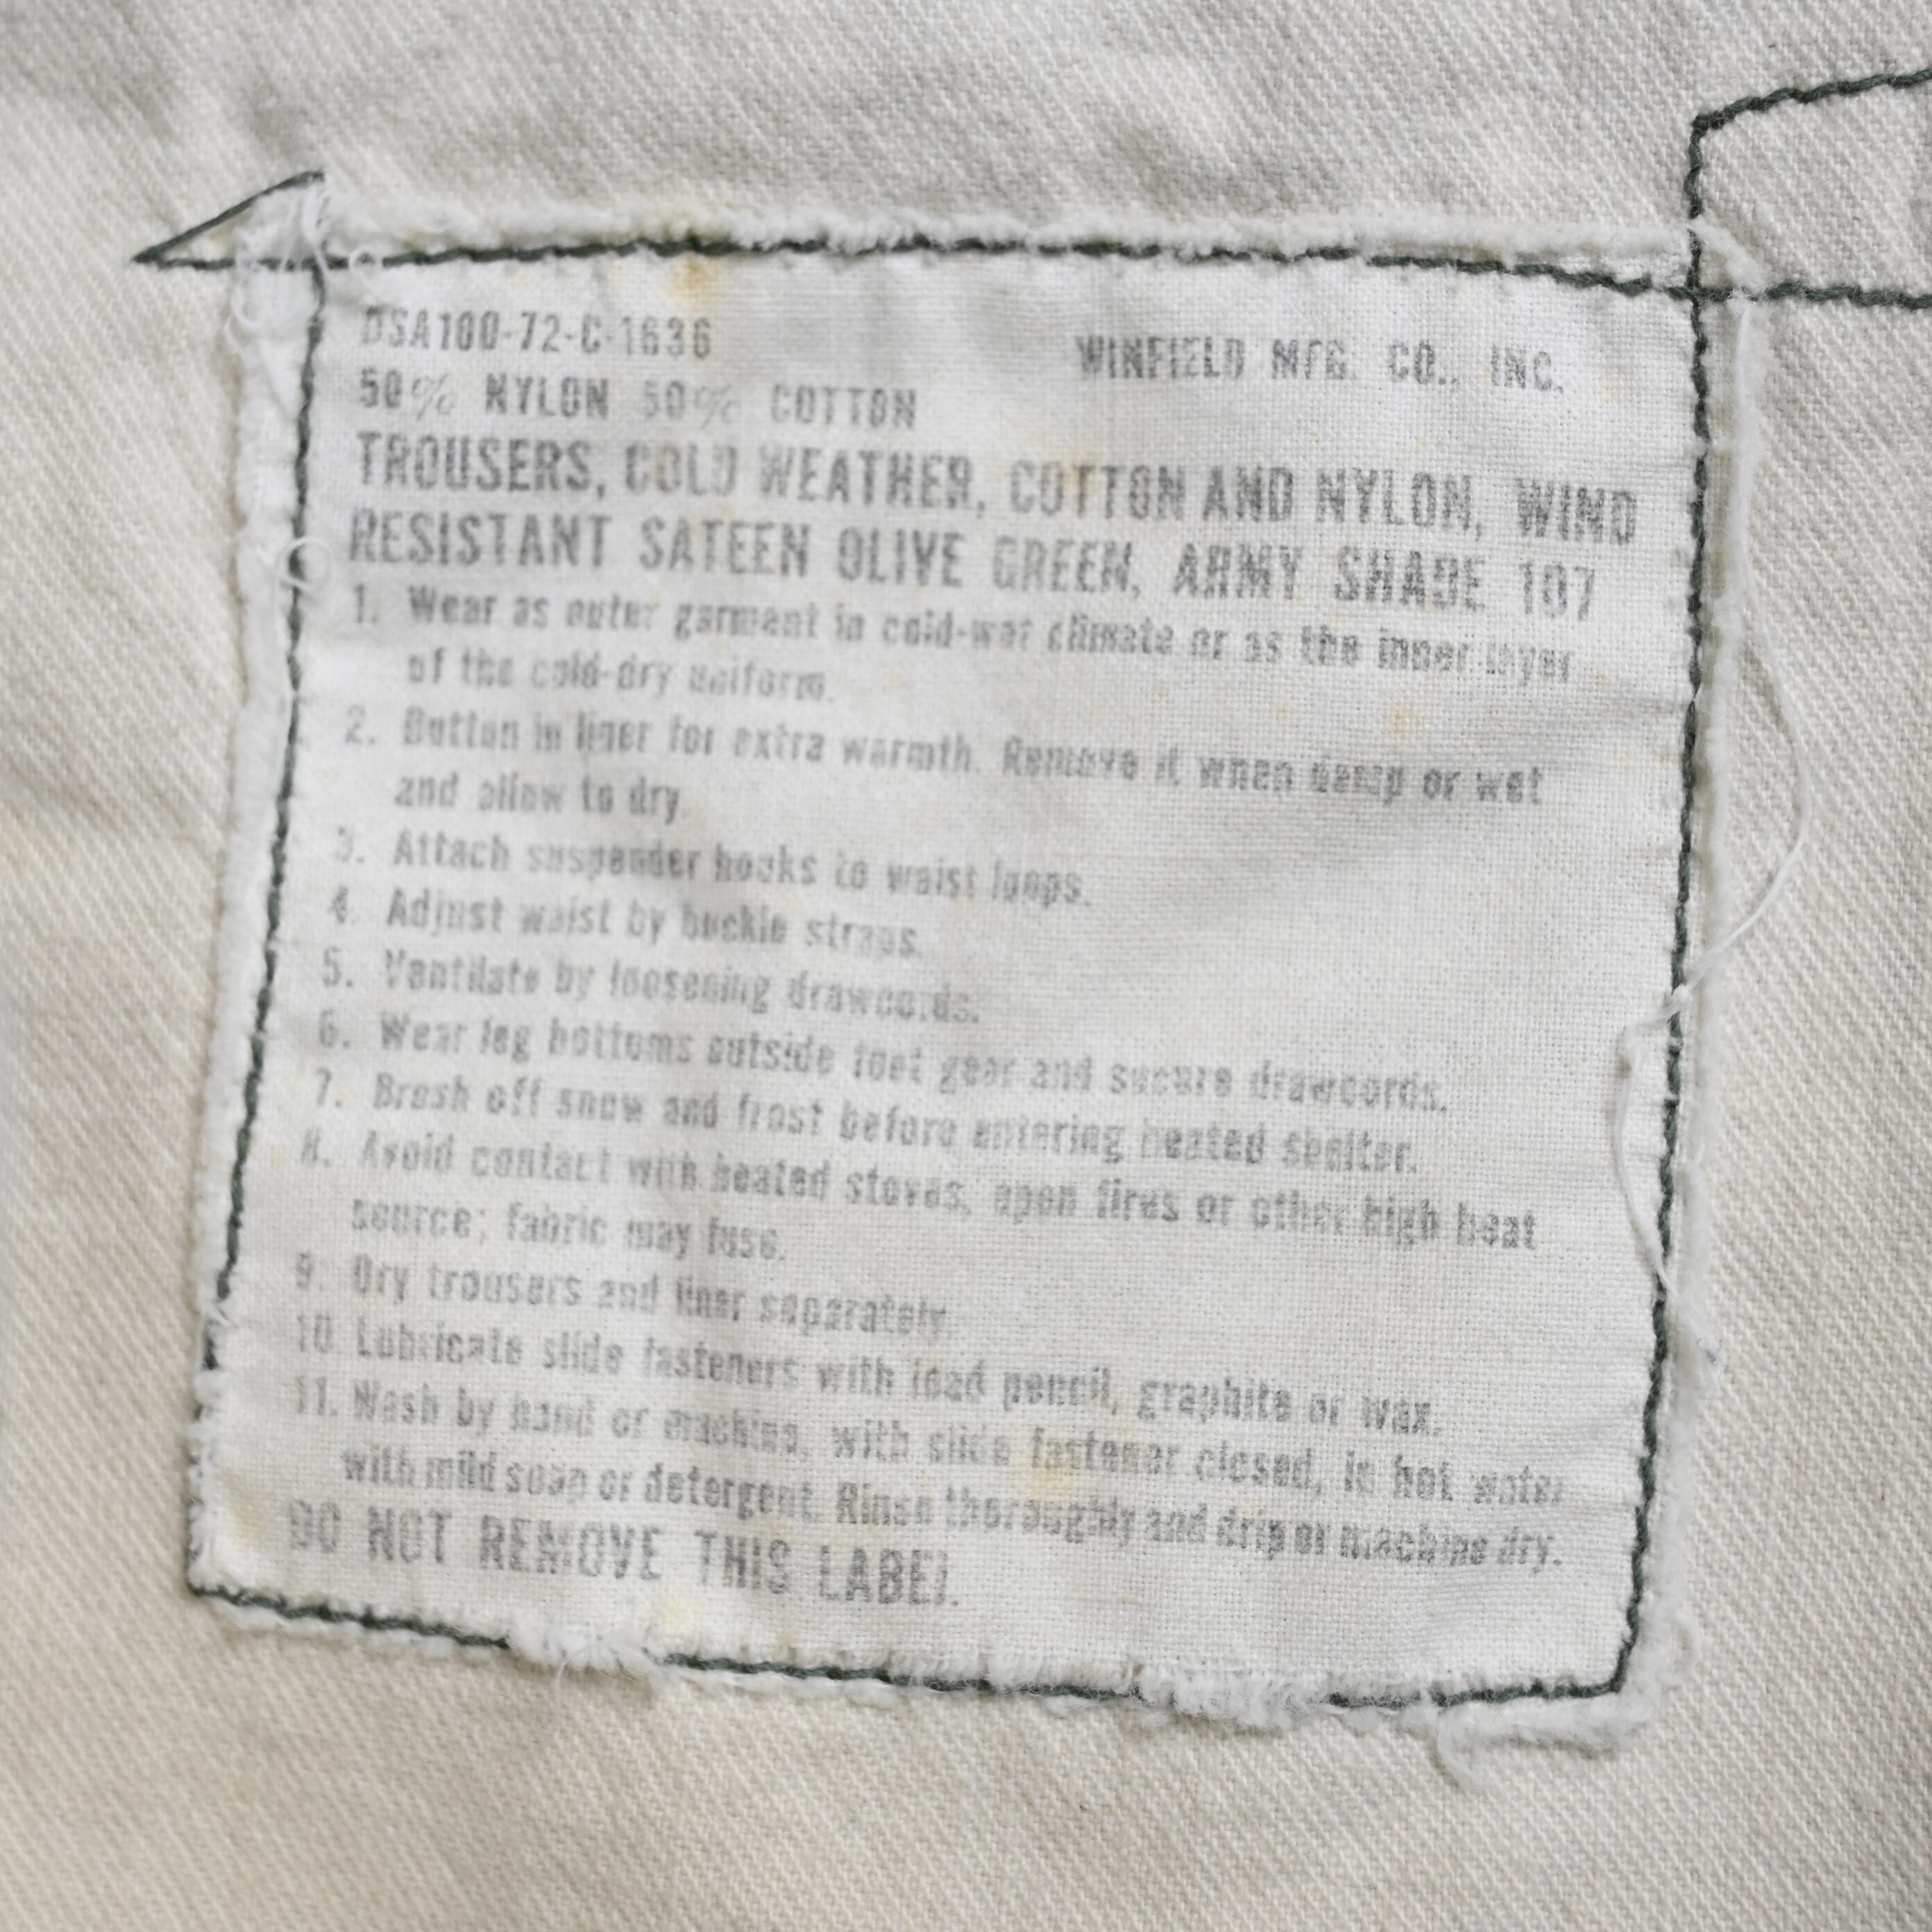 DSA100-72-C-1636
WINFIELD MFG. CO., INC.
50% NYLON 50% COTTON
TROUSERS, COLD WEATHER, COTTON AND NYLON, WIND
RESISTANT SATEEN OLIVE GREEN, ARMY SHADE 107
1. Wear as outer garment in cold-wet climate or as the inner layer
of the cold-dry uniform.
2. Button in liner for extra warmth. Remove it when damp or wet
and allow to dry.
3. Attach suspender hooks to waist loops.
4. Adjust waist by buckle straps.
5. Ventilate by loosening drawcords.
6. Wear leg bottoms outside foot gear and secure drawcords.
7. Brush off snow and frost before entering heated shelter.
8. Avoid contact with heated stoves, open fires or other high heat
source; fabric may fuse.
9. Dry trousers and liner separately.
10. Lubricate slide fasteners with lead pencil, graphite or wax.
11. Wash by hand or machine, with slide fastener closed, in hot water
with mild soap or detergent. Rinse thoroughly and drip or machine dry.
DO NOT REMOVE THIS LABEL.